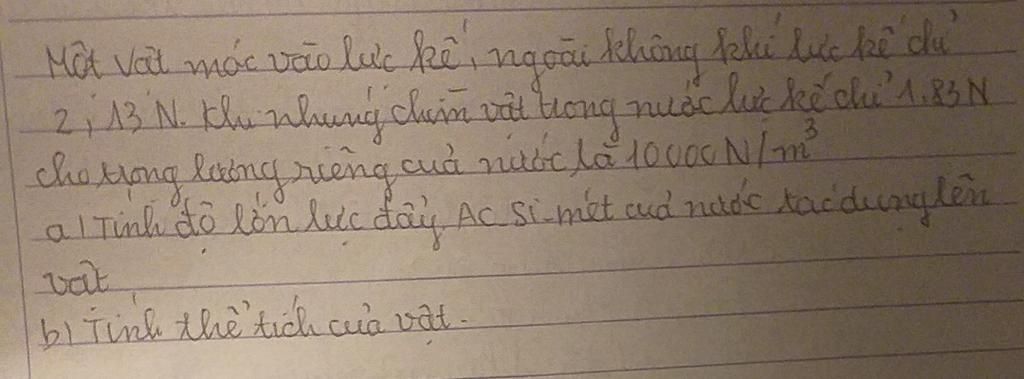 Một vật móc vào lực kế, ngoài không khí lực kế chỉ
2,13 N. Khi nhúng chìm vật trong nước lực kế chỉ 1.83N
cho trọng lượng riêng của nước là 10000N/m³
a) Tính độ lớn lực đẩy Ac Si-mét của nước tác dụng lên
vật
b) Tính thể tích của vật.